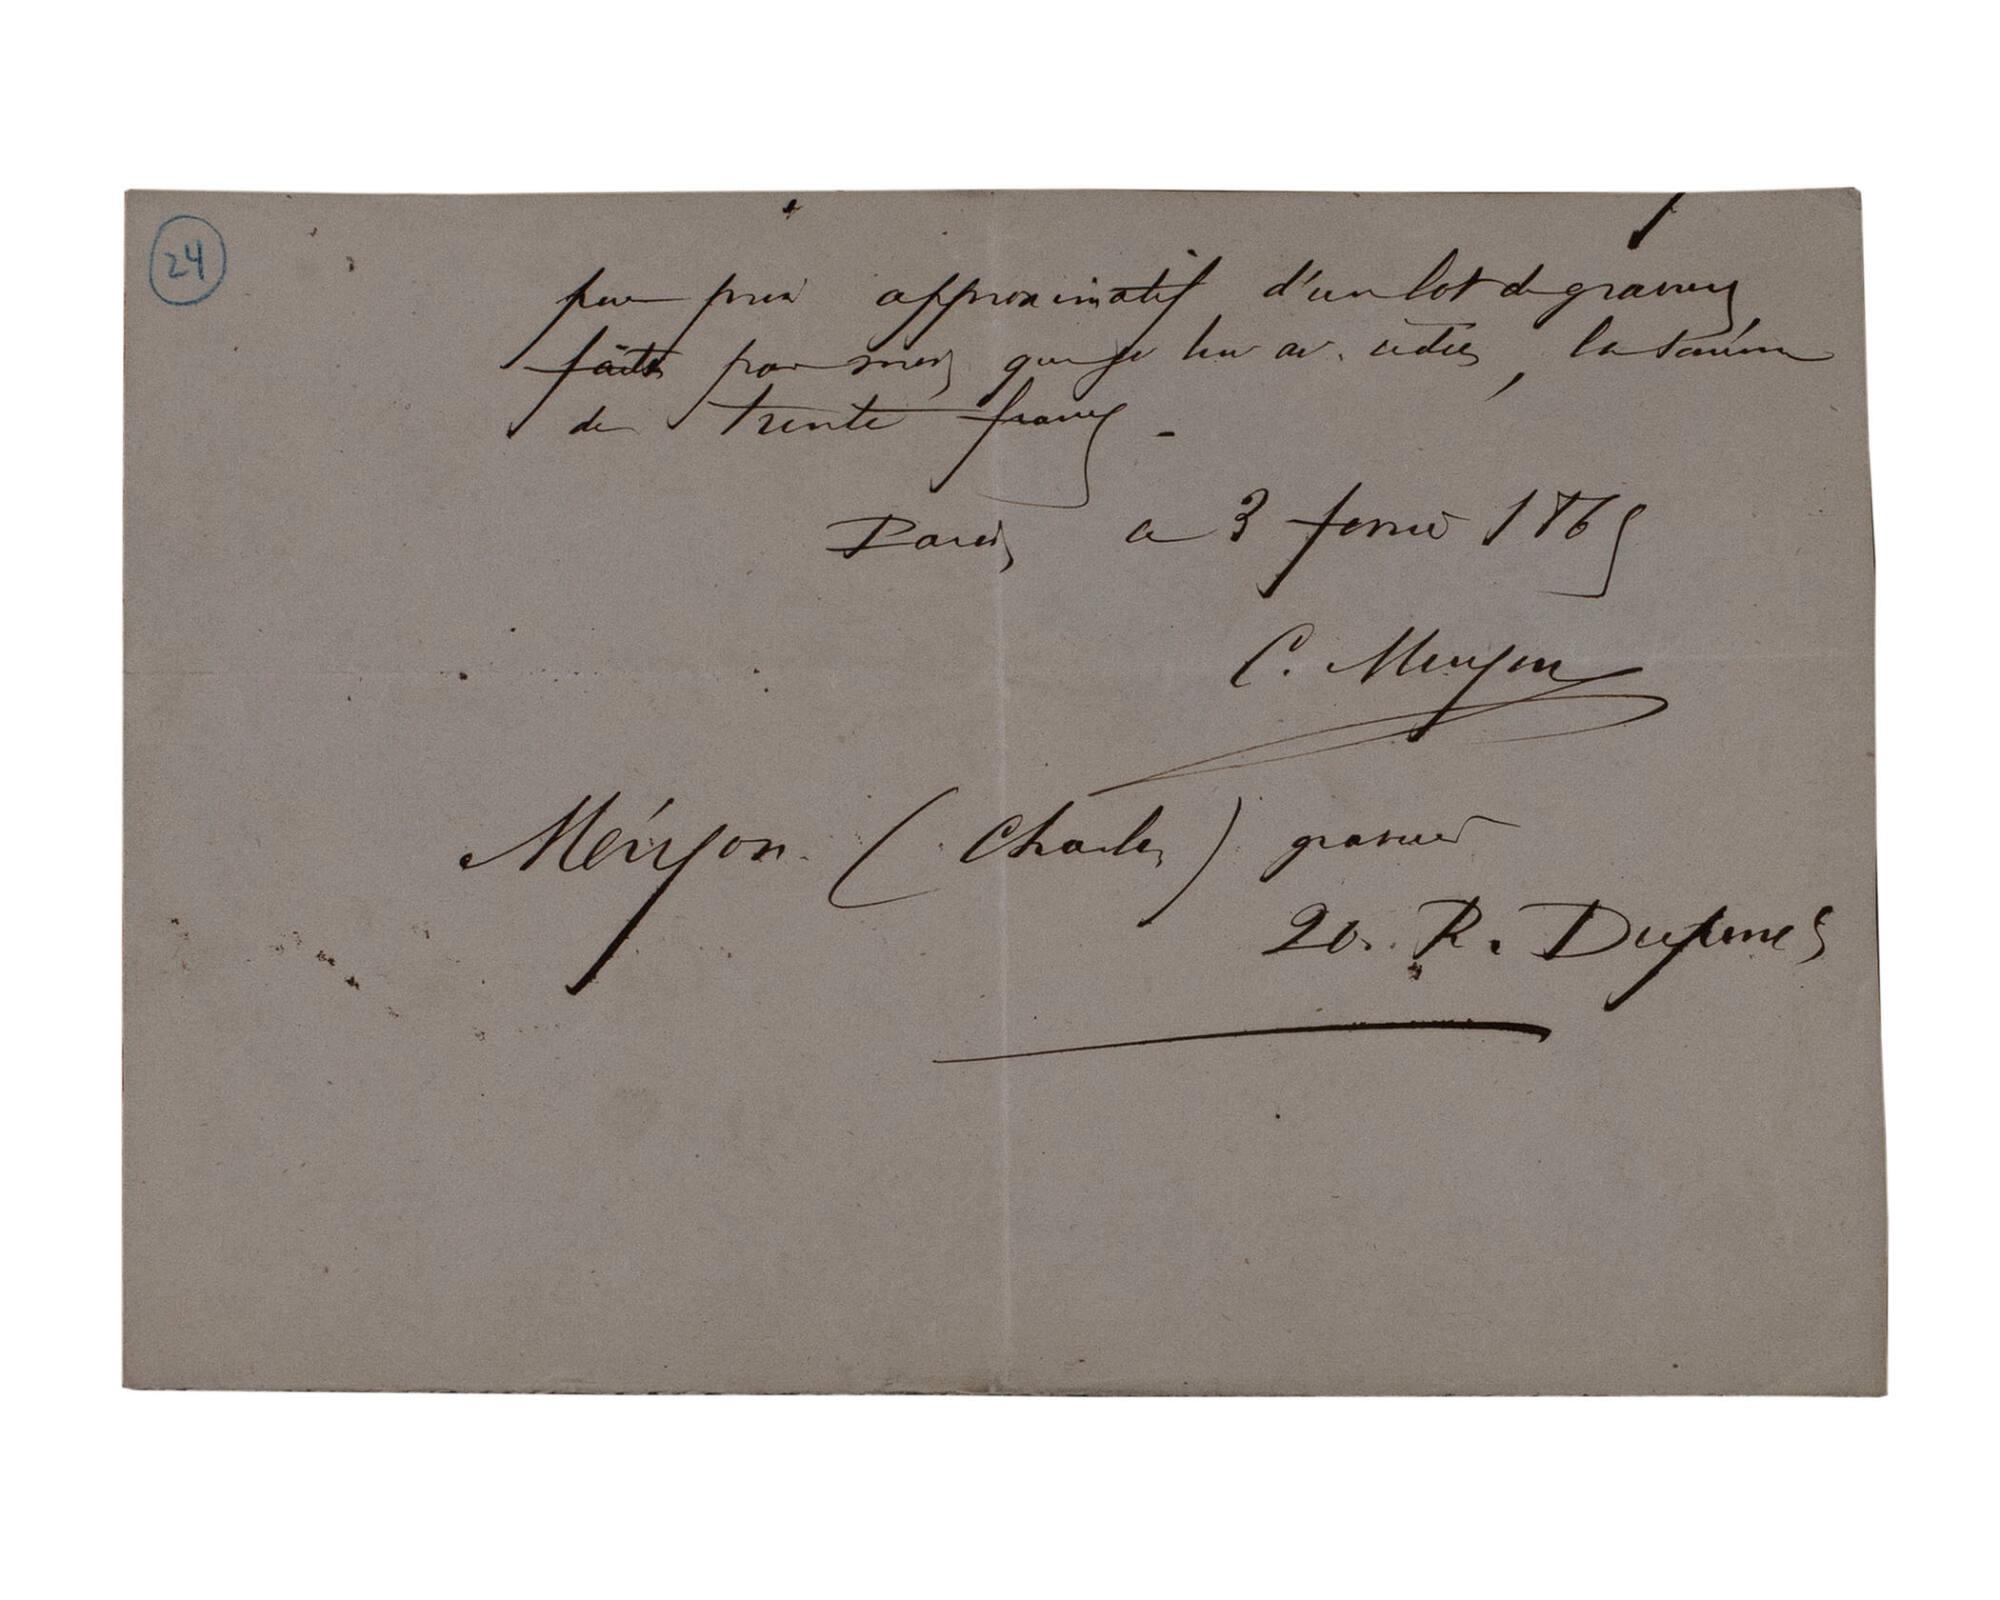 24
pour prix approximatif d'un lot de gravures
faits par moi, que je lui ai cédées, la somme
de trente francs -
Paris a 3 fevrier 1865
C. Meryon
Méryon. (Charles) graveur
20. R. Duperré